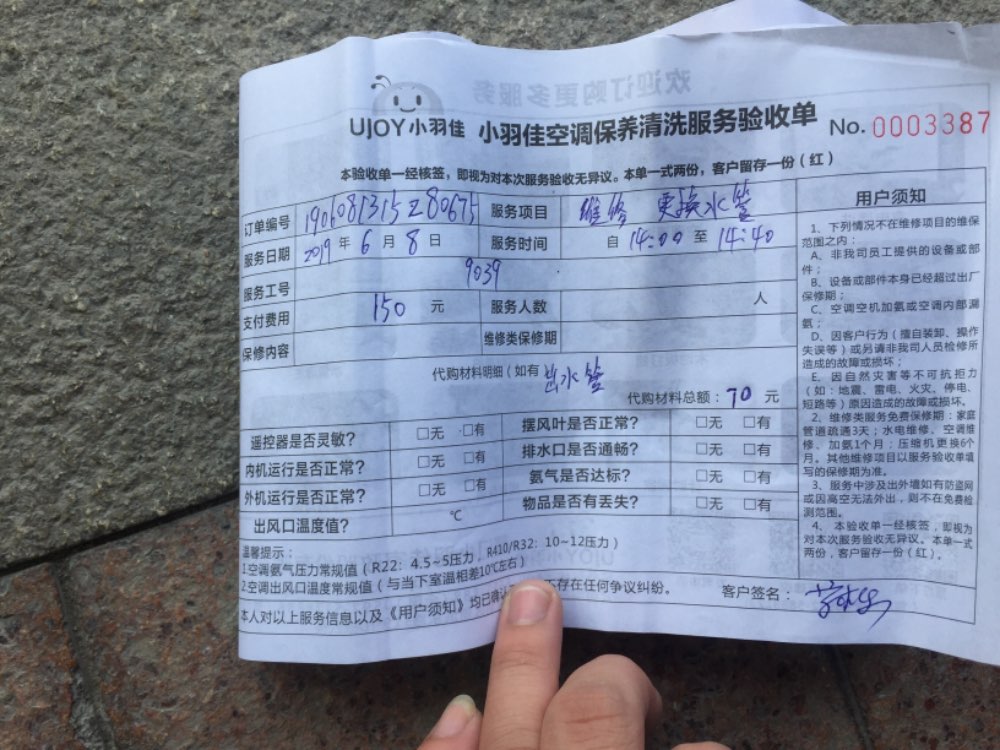 欢迎订购更多服务
UJOY小羽佳 小羽佳空调保养清洗服务验收单 No. 0003387
本验收单一经核签，即视为对本次服务验收无异议。本单一式两份，客户留存一份（红）
订单编号 1906081315280675 服务项目 维修 更换水管
服务日期 2019 年 6 月 8 日 服务时间 自 14:00 至 14:40
服务工号 9039
支付费用 150 元 服务人数 人
保修内容 维修类保修期
代购材料明细（如有 出水管
代购材料总额：70 元
遥控器是否灵敏？ □无 □有 摆风叶是否正常？ □无 □有
内机运行是否正常？ □无 □有 排水口是否通畅？ □无 □有
外机运行是否正常？ □无 □有 氨气是否达标？ □无 □有
出风口温度值？ ℃ 物品是否有丢失？ □无 □有
温馨提示：
1.空调氨气压力常规值（R22：4.5~5压力，R410/R32：10~12压力）
2.空调出风口温度常规值（与当下室温相差10℃左右）
本人对以上服务信息以及《用户须知》均已确认 存在任何争议纠纷。 客户签名：
用户须知
1、下列情况不在维修项目的维保
范围之内：
A、非我司员工提供的设备或部
件；
B、设备或部件本身已经超过出厂
保修期；
C、空调空机加氨或空调内部漏
氨；
D、因客户行为（擅自装卸、操作
失误等）或另请非我司人员检修所
造成的故障或损坏；
E、因自然灾害等不可抗拒力
（如：地震、雷电、火灾、停电、
短路等）原因造成的故障或损坏。
2、维修类服务免费保修期：家庭
管道疏通3天；水电维修、空调维
修、加氨1个月；压缩机更换6个
月。其他维修项目以服务验收单填
写的保修期为准。
3、服务中涉及出外墙如有防盗网
或因高空无法外出，则不在免费检
测范围。
4、本验收单一经核签，即视为
对本次服务验收无异议。本单一式
两份，客户留存一份（红）。